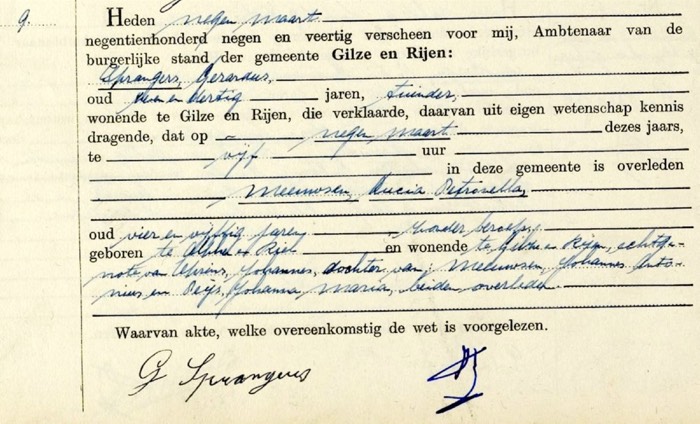 9.
Heden negen maart
negentienhonderd negen en veertig verscheen voor mij, Ambtenaar van de
burgerlijke stand der gemeente Gilze en Rijen:
Sprangers, Gerardus,
oud en dertig jaren, tuinder,
wonende te Gilze en Rijen, die verklaarde, daarvan uit eigen wetenschap kennis
dragende, dat op negen maart dezes jaars,
te vijf uur
in deze gemeente is overleden
Meeuwesen, Lucia Petronella,
oud vier en vijftig jaren, zonder beroep,
geboren te Alphen en Riel en wonende te Gilze en Rijen, echtge-
note van Johannes, dochter van Meeuwesen, Johannes Anto-
nius en Johanna Maria, beiden overleden.
Waarvan akte, welke overeenkomstig de wet is voorgelezen.
G Sprangers